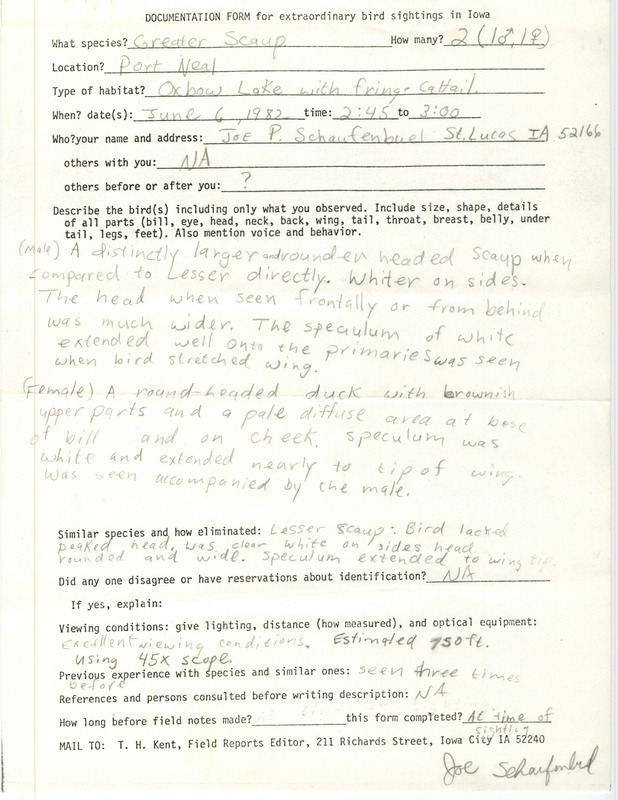 DOCUMENTATION FORM for extraordinary bird sightings in Iowa
What species? Greater Scaup How many? 2 (1♂, 1♀)
Location? Port Neal
Type of habitat? Oxbow Lake with fringe Cattail.
When? date(s): June 6, 1982 time: 2:45 to 3:00
Who? your name and address: Joe P. Schaufenbuel St. Lucas IA 52166
others with you: NA
others before or after you: ?
Describe the bird(s) including only what you observed. Include size, shape, details
of all parts (bill, eye, head, neck, back, wing, tail, throat, breast, belly, under
tail, legs, feet). Also mention voice and behavior.
(Male) A distinctly larger and rounder headed Scaup when
compared to Lesser directly. Whiter on sides.
The head when seen frontally or from behind
was much wider. The speculum of white
extended well onto the primaries was seen
when bird stretched wing.
(Female) A round-headed duck with brownish
upper parts and a pale diffuse area at base
of bill and on cheek. Speculum was
white and extended nearly to tip of wing.
Was seen accompanied by the male.
Similar species and how eliminated: Lesser Scaup: Bird lacked
peaked head, was clear white on sides head
rounded and wide. Speculum extended to wing tip.
Did any one disagree or have reservations about identification? NA
If yes, explain:
Viewing conditions: give lighting, distance (how measured), and optical equipment:
Excellent viewing conditions. Estimated 750 ft.
Using 45x scope.
Previous experience with species and similar ones: seen three times
before
References and persons consulted before writing description: NA
How long before field notes made? this form completed? At time of
sighting
MAIL TO: T. H. Kent, Field Reports Editor, 211 Richards Street, Iowa City IA 52240
Joe